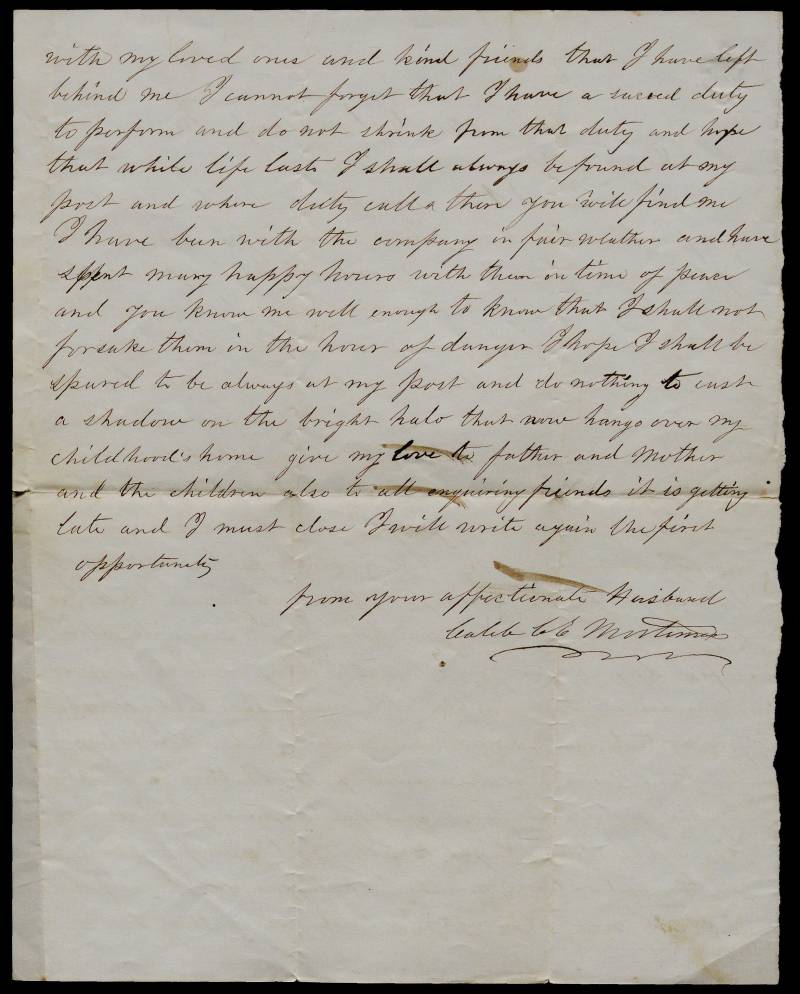 with my loved ones and kind friends that I have left
behind me I cannot forget that I have a sacred duty
to perform and do not shrink from that duty and hope
that while life lasts I shall always be found at my
post and where duty calls there you will find me
I have been with the company in fair weather and have
spent many happy hours with them in time of peace
and you know me well enough to know that I shall not
forsake them in the hour of danger I hope I shall be
spared to be always at my post and do nothing to cast
a shadow on the bright halo that now hangs over my
childhood's home give my love to father and Mother
and the children also to all enquiring friends it is getting
late and I must close I will write again the first
opportunity
from your affectionate Husband
Caleb